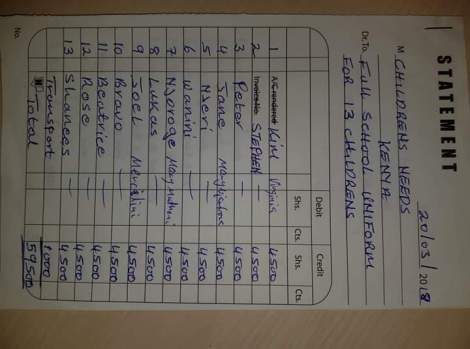 STATEMENT
20/03/2018
M CHILDRENS NEEDS
KENYA
Dr. To. FULL SCHOOL UNIFORM
FOR 13 CHILDRENS
Debit Credit
Shs. Cts. Shs. Cts.
1 Kim Virginia 4500
2 Invoices No. STEPHEN — 4500
3 Peter — 4500
4 Jane 4500
5 Njeri — 4500
6 Wanini — 4500
7 Njoroge 4500
8 Lukas — 4500
9 Joel 4500
10 Bravo — 4500
11 Beatrice — 4500
12 Rose — 4500
13 Shanees — 4500
Transport 1000
Total 59500
No.